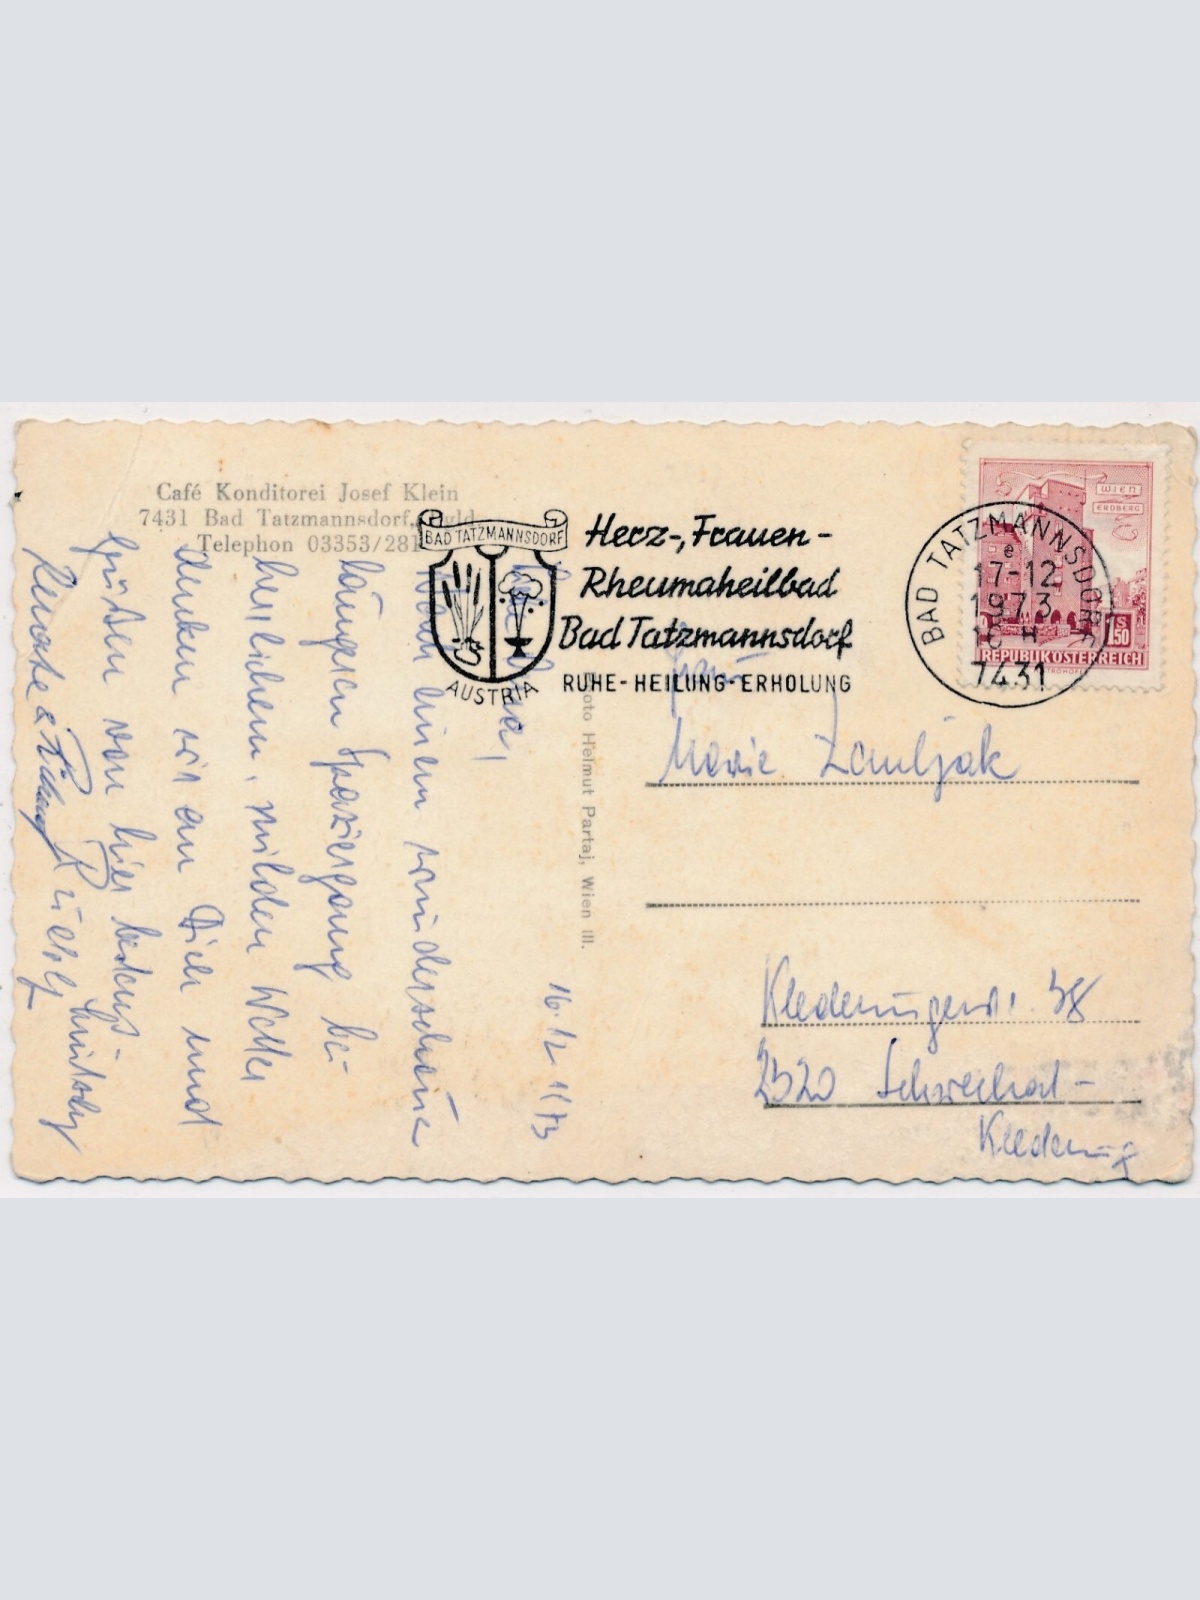 Café Konditorei Josef Klein
7431 Bad Tatzmannsdorf, Bgld.
Telephon 03353/281
BAD TATZMANNSDORF
AUSTRIA
Herz-, Frauen-
Rheumaheilbad
Bad Tatzmannsdorf
RUHE-HEILUNG-ERHOLUNG
BAD TATZMANNSDORF
e
17-12
1973
16 H
7431
WIEN
ERDBERG
S 1.50
REPUBLIK ÖSTERREICH
16. 12. 1973
Nach einem wunderschönen
längeren Spaziergang bei
herrlichem, milden Wetter
denken wir an Dich und
grüßen von hier
Renate &
Photo Helmut Partaj, Wien III.
Frau
Marie Zauljak
Klederingerstr. 38
2320 Schwechat-
Kledering